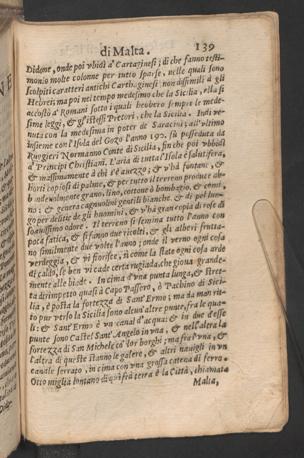 di Malta. 139
Didone, onde poi vbidì a' Cartaginesi; di che fanno testi-
monio molte colonne per tutto sparse, nelle quali sono
scolpiti caratteri antichi Carthaginesi non dissimili à gli
Hebrei; ma poi nel tempo medesimo che la Sicilia, ella si
accostò a' Romani sotto i quali hebbero sempre le mede-
sime leggi, & gl'istessi Pretori, che la Sicilia. Indi ve-
nuta con la medesima in poter de Saracini; all'vltimo
insieme con l'Isola del Gozo l'anno 190. fù posseduta da
Ruggieri Normanno Conte di Sicilia, fin che poi vbbidì
a' Principi Christiani. L'aria di tutta l'Isola è salutifera,
& massimamente à chi s'è auezzo; & v'ha fontane, &
horti copiosi di palme, & per tutto il terreno produce ab
bondeuolmente grano, lino, cottone ò bombagio, & comi-
no: & genera cagnuolini gentili bianche, & di pel lun-
go per delitie de gli huomini, & v'hà gran copia di rose di
soauissimo odore. Il terreno si semina tutto l'anno con
poca fatica, & si fanno due ricolti, & gli alberi frutta-
no similmente due volte l'anno; onde il verno ogni cosa
verdeggia, & vi fiorisce, si come la state ogni cosa arde
di caldo, se ben vi cade certa rugiada, che gioua grande-
mente alle biade. In cima d'vna punta lunga, & stret-
ta dirimpetto quasi à Capo Passero, ò Pachino di Sici-
lia, è posta la fortezza di Sant'Ermo; ma da man rit-
ta pur verso la Sicilia sono alcun'altre punte, fra le qua-
li: & Sant'Ermo è vn canal d'acqua: & in due d'esse
punte sono Castel Sant'Angelo in vna, & nell'altra la
fortezza di San Michele co' lor borghi; ma fra l'vna, &
l'altra di queste stanno le galere, & altri nauigli in vn
canale serrato, in cima con vna grossa catena di ferro.
Otto miglia lontano di quì frà terra è la Città, chiamata
Malta,